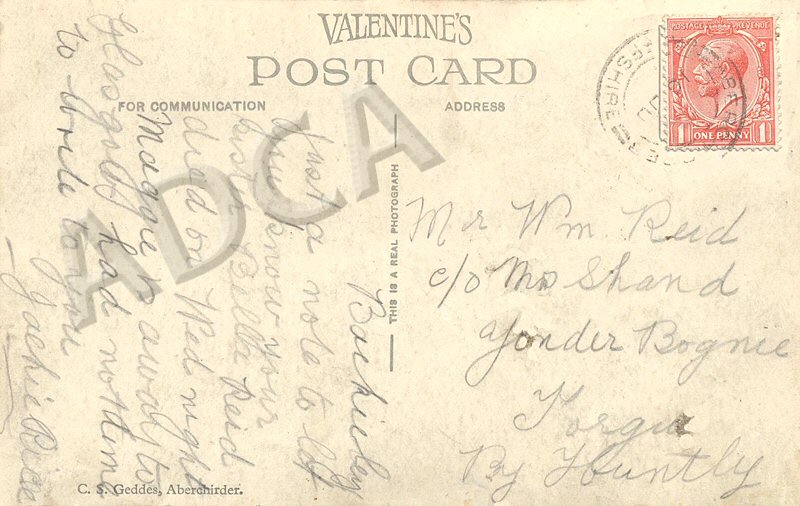 VALENTINE'S
POST CARD
FOR COMMUNICATION
ADDRESS
THIS IS A REAL PHOTOGRAPH
POSTAGE REVENUE
1 ONE PENNY 1
Just a note to let
you know your
sister Bella Reid
died on Wed night
Maggie is away to
Glasgow had no time
to write to you
Jackie
Mr Wm Reid
c/o Mr Shand
Yonder Bognie
Forgue
By Huntly
C. S. Geddes, Aberchirder.
ADCA